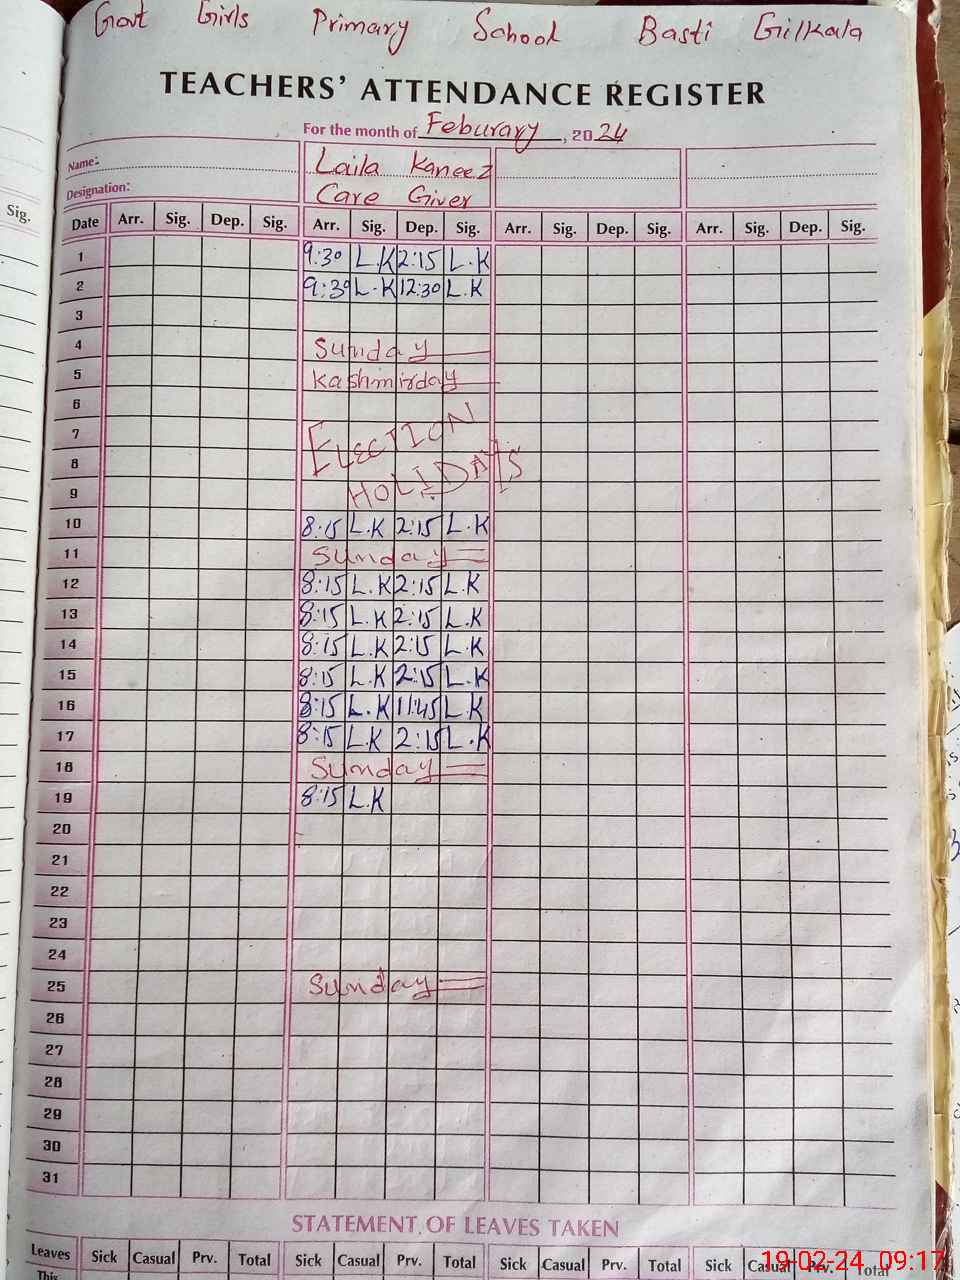 Govt Girls Primary School Basti Gilkala
TEACHERS' ATTENDANCE REGISTER
For the month of Feburary, 2024
Name: Laila Kaneez
Designation: Care Giver
Sig.
Date Arr. Sig. Dep. Sig. Arr. Sig. Dep. Sig. Arr. Sig. Dep. Sig. Arr. Sig. Dep. Sig.
1 9:30 L.K 2:15 L.K
2 9:30 L.K 12:30 L.K
3
4 Sunday
5 Kashmirday
6
7 ELECTION
8 HOLIDAYS
9
10 8:15 L.K 2:15 L.K
11 Sunday
12 8:15 L.K 2:15 L.K
13 8:15 L.K 2:15 L.K
14 8:15 L.K 2:15 L.K
15 8:15 L.K 2:15 L.K
16 8:15 L.K 11:45 L.K
17 8:15 L.K 2:15 L.K
18 Sunday
19 8:15 L.K
20
21
22
23
24
25 Sunday
26
27
28
29
30
31
STATEMENT OF LEAVES TAKEN
Leaves Sick Casual Prv. Total Sick Casual Prv. Total Sick Casual Prv. Total Sick Casual Prv. Total
This
19-02-24 09:17